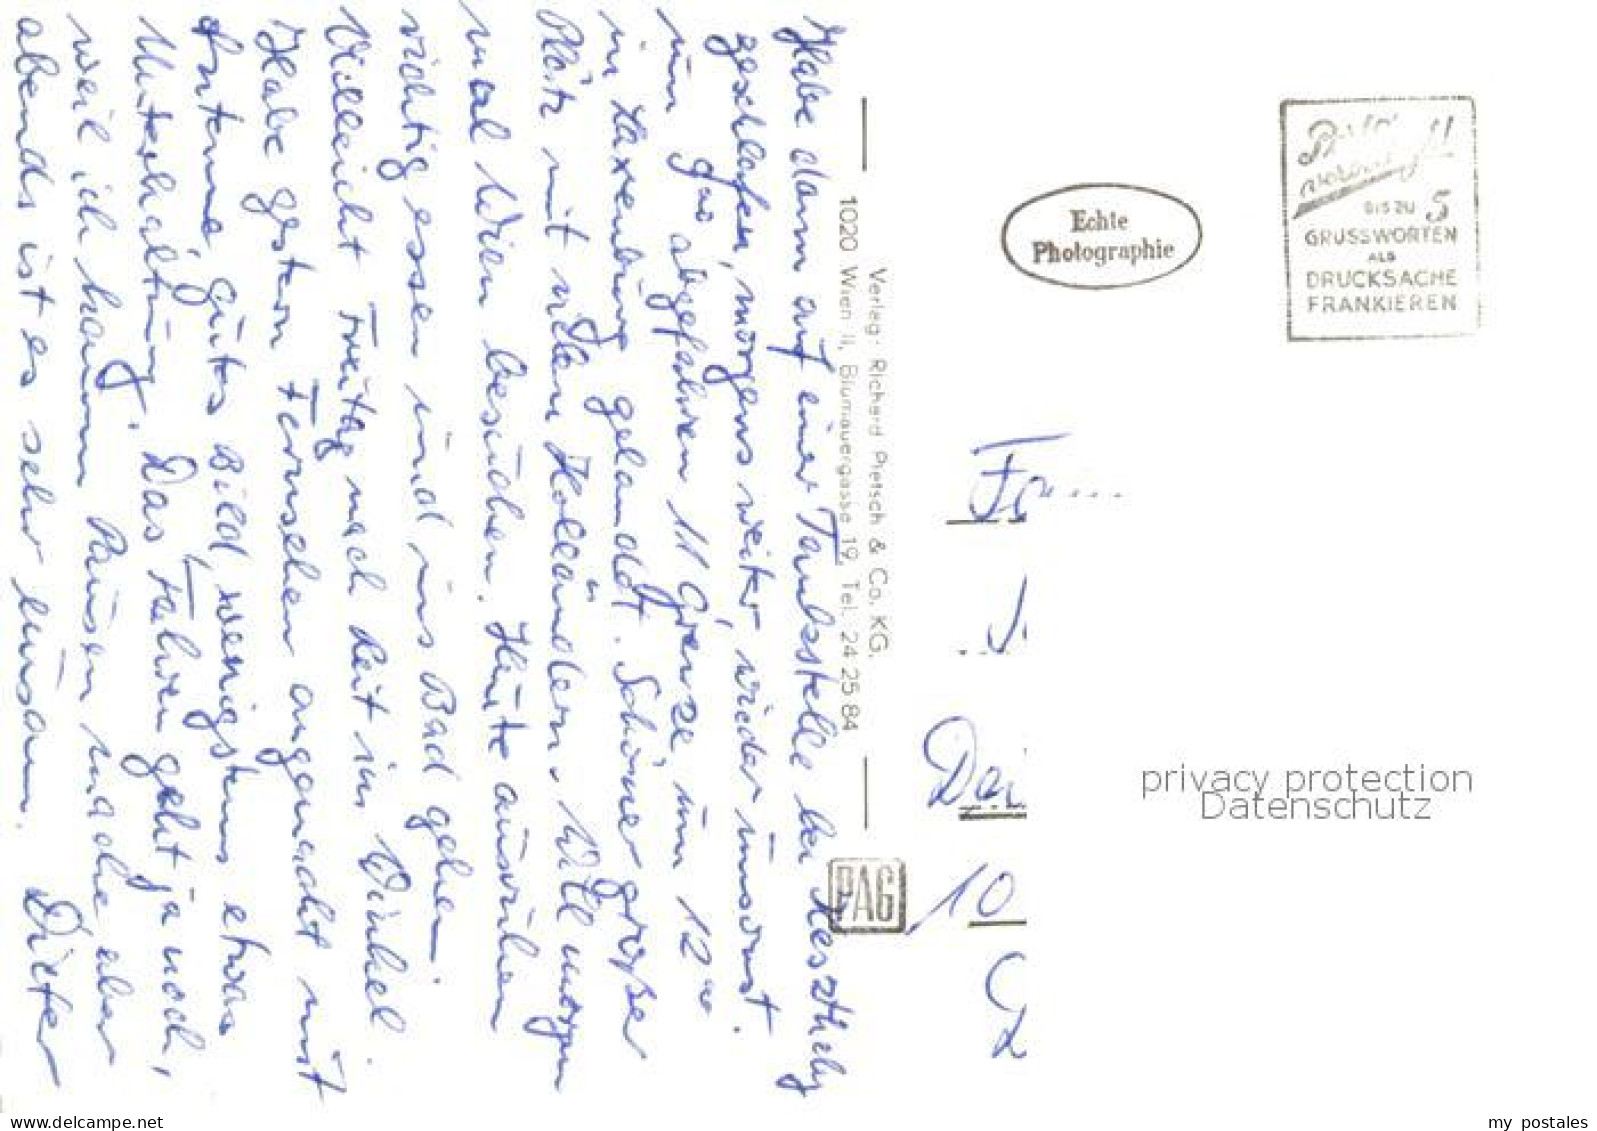 Habe dann auf einer Tankstelle bei Keszthely
geschlafen, morgens weiter, wieder umsonst.
um 9°° abgefahren 11 Grenze, um 12°°
in Laxenburg gelandet. Schöner großer
Platz mit vielen Holländern. Will morgen
mal Wien besuchen. Heute ausruhen
richtig essen und ins Bad gehen.
Vielleicht Freitag nach Reit im Winkel.
Habe gestern Fernsehen angemacht mit
Antenne, gutes Bild, wenigstens etwas
Unterhaltung. Das Fahren geht ja noch,
weil ich kaum Pausen mache aber
abends ist es sehr einsam. Dieter
Verlag: Richard Pietsch & Co. KG.
1020 Wien II, Blumauergasse 19, Tel. 24 25 84
PAG
Echte
Photographie
BIS ZU 5
GRUSSWORTEN
ALS
DRUCKSACHE
FRANKIEREN
10
privacy protection
Datenschutz
www.delcampe.net
my_postales